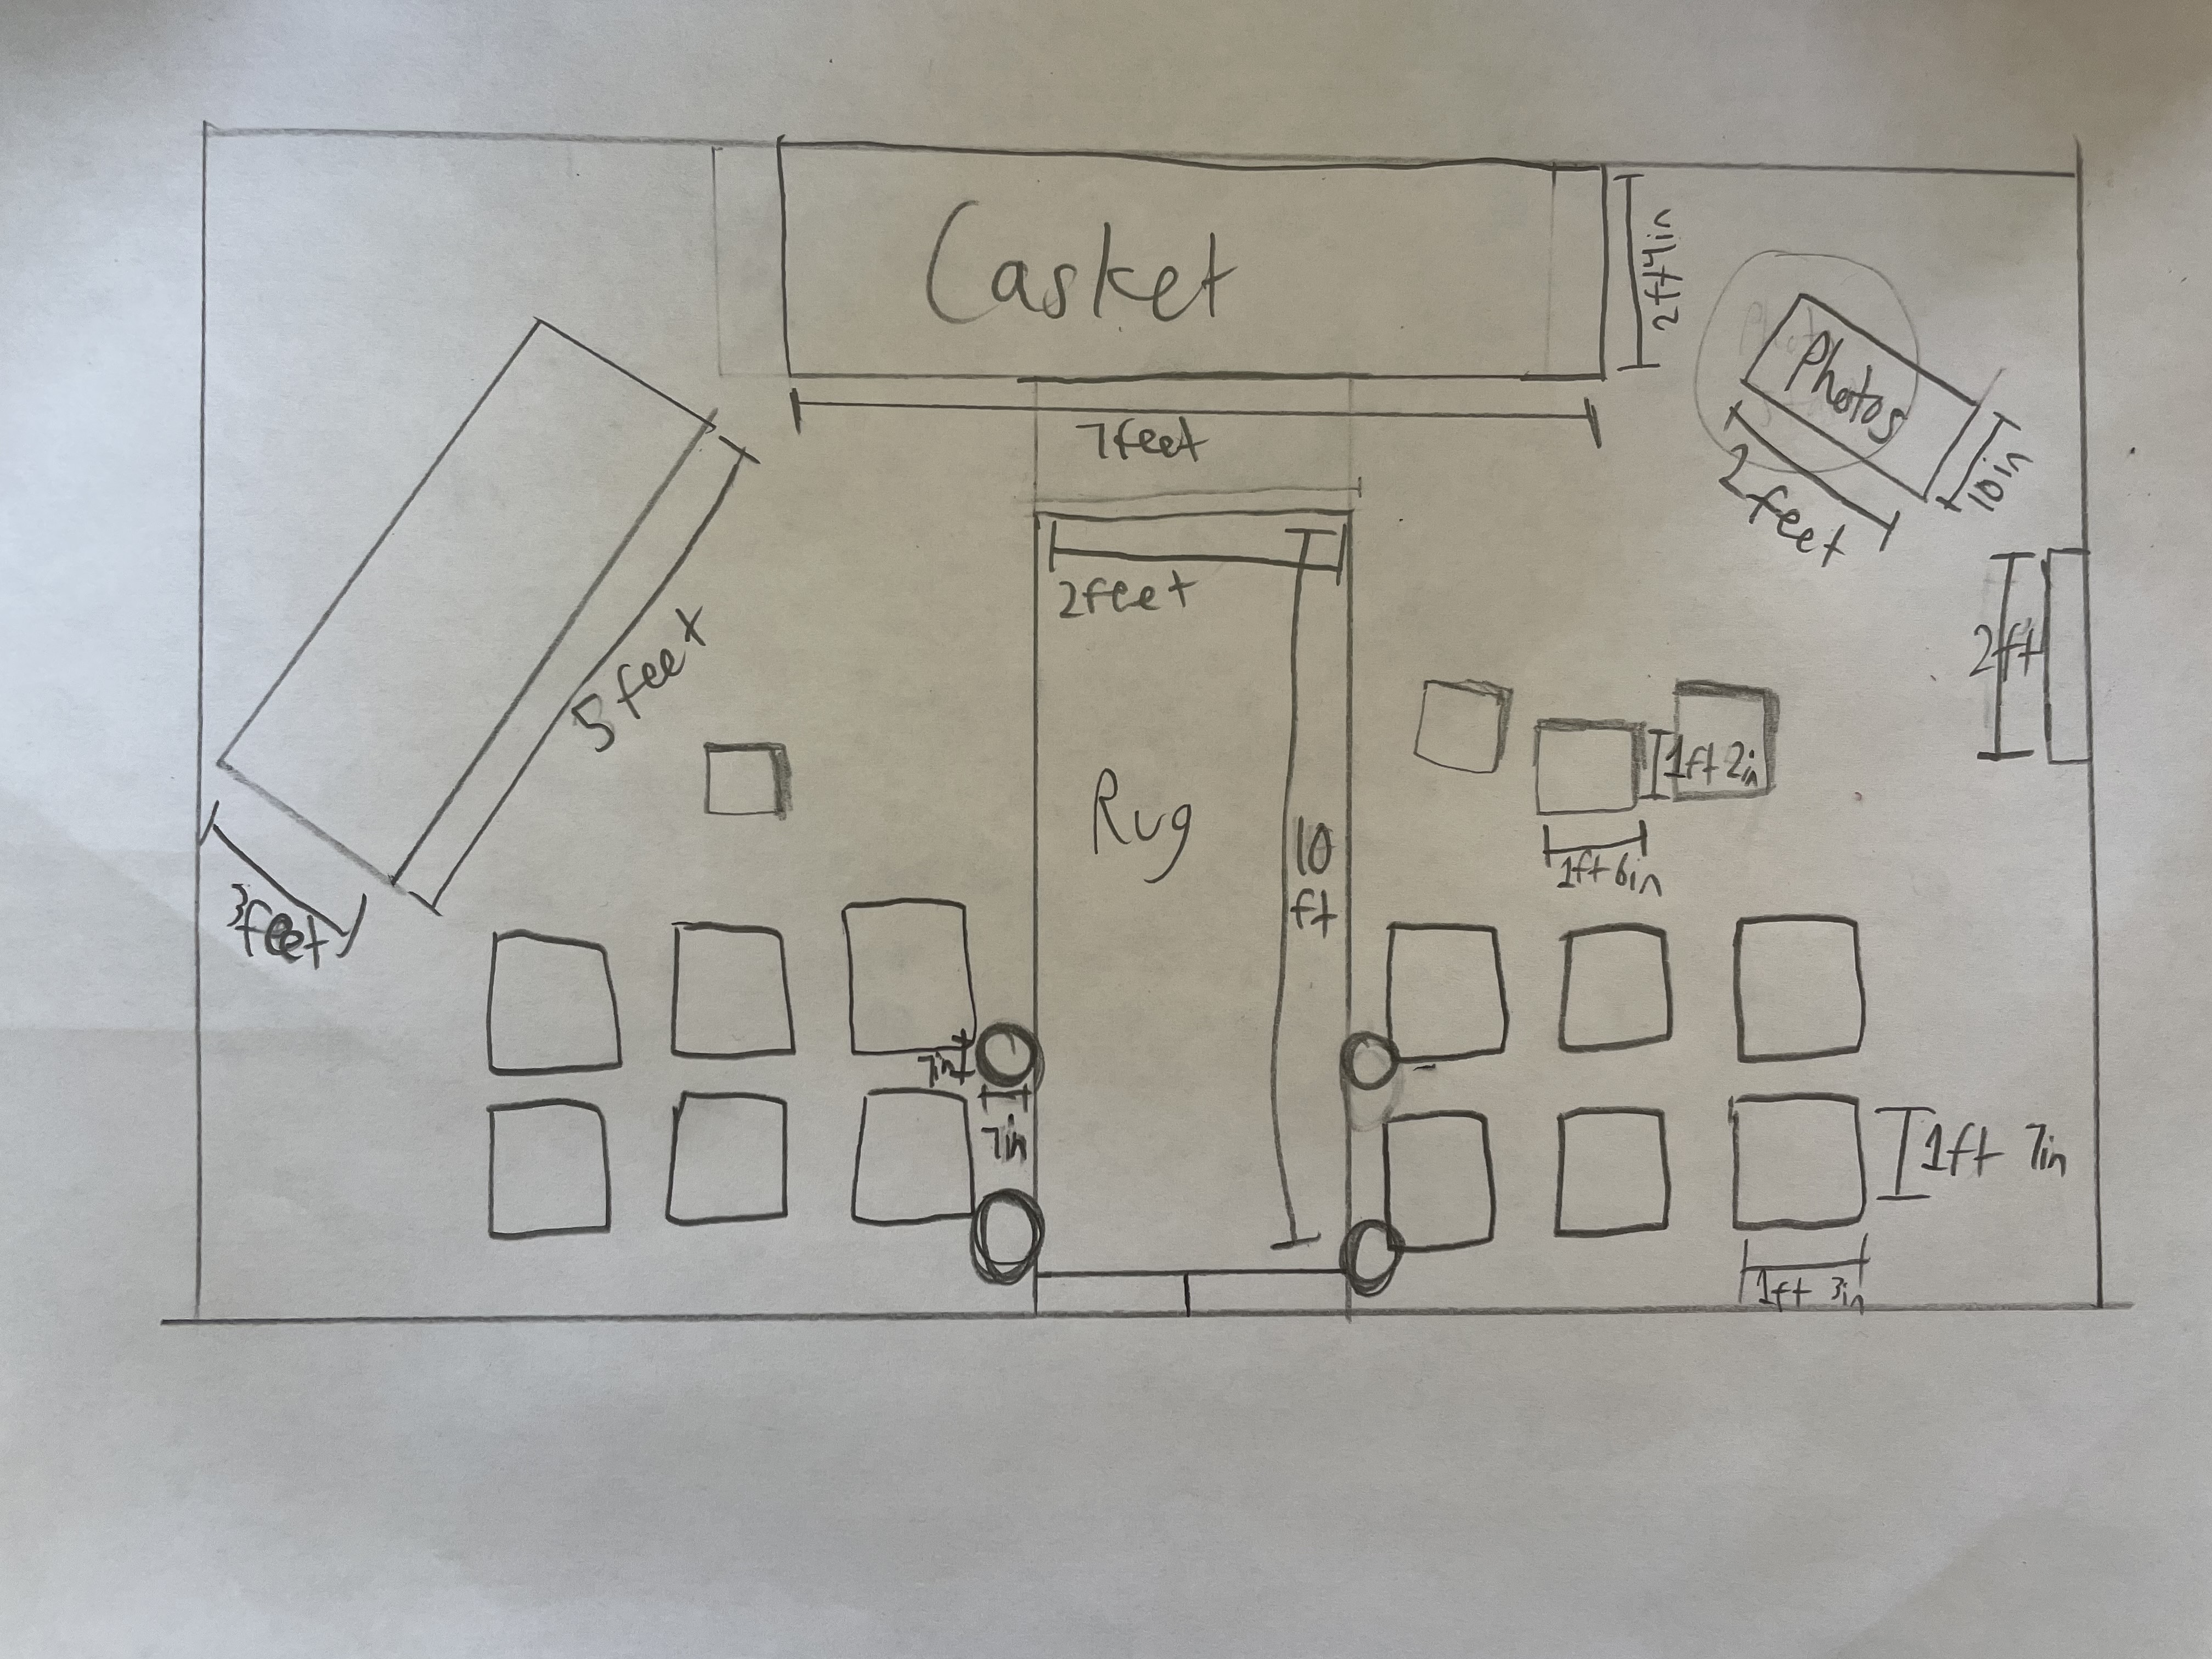 Casket
2ft 4in
7feet
Photos
10in
2feet
2feet
2ft
5feet
Rug
10
ft
1ft 2in
1ft 6in
3feet
7in
7in
1ft 7in
1ft 3in